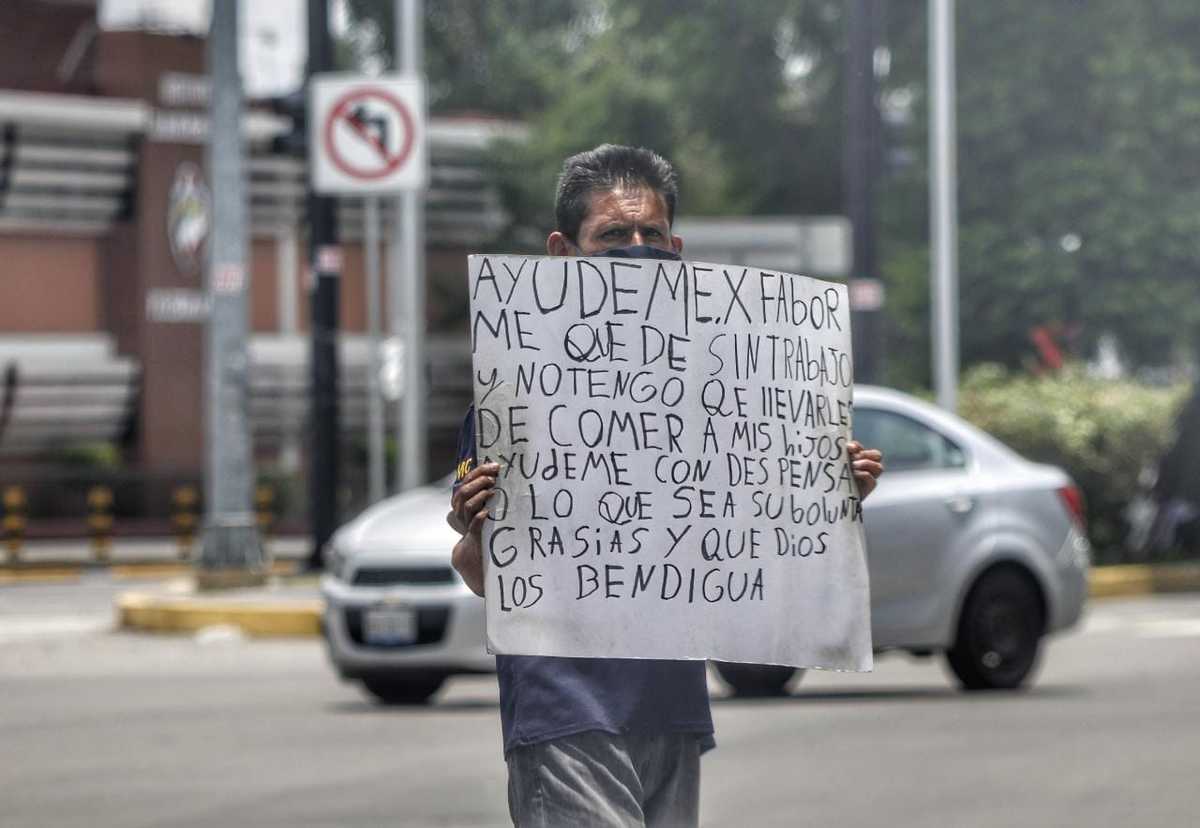 AYUDEME.X FAbOR
ME QUE DE SIN TRABAJO
Y NO TENGO QE llEVARLES
DE COMER A MIS hijOS
AYUDEME CON DESPENSA
O LO QUE SEA SU bolunTA
GRASiAS Y QUE DiOS
LOS BENDIGUA